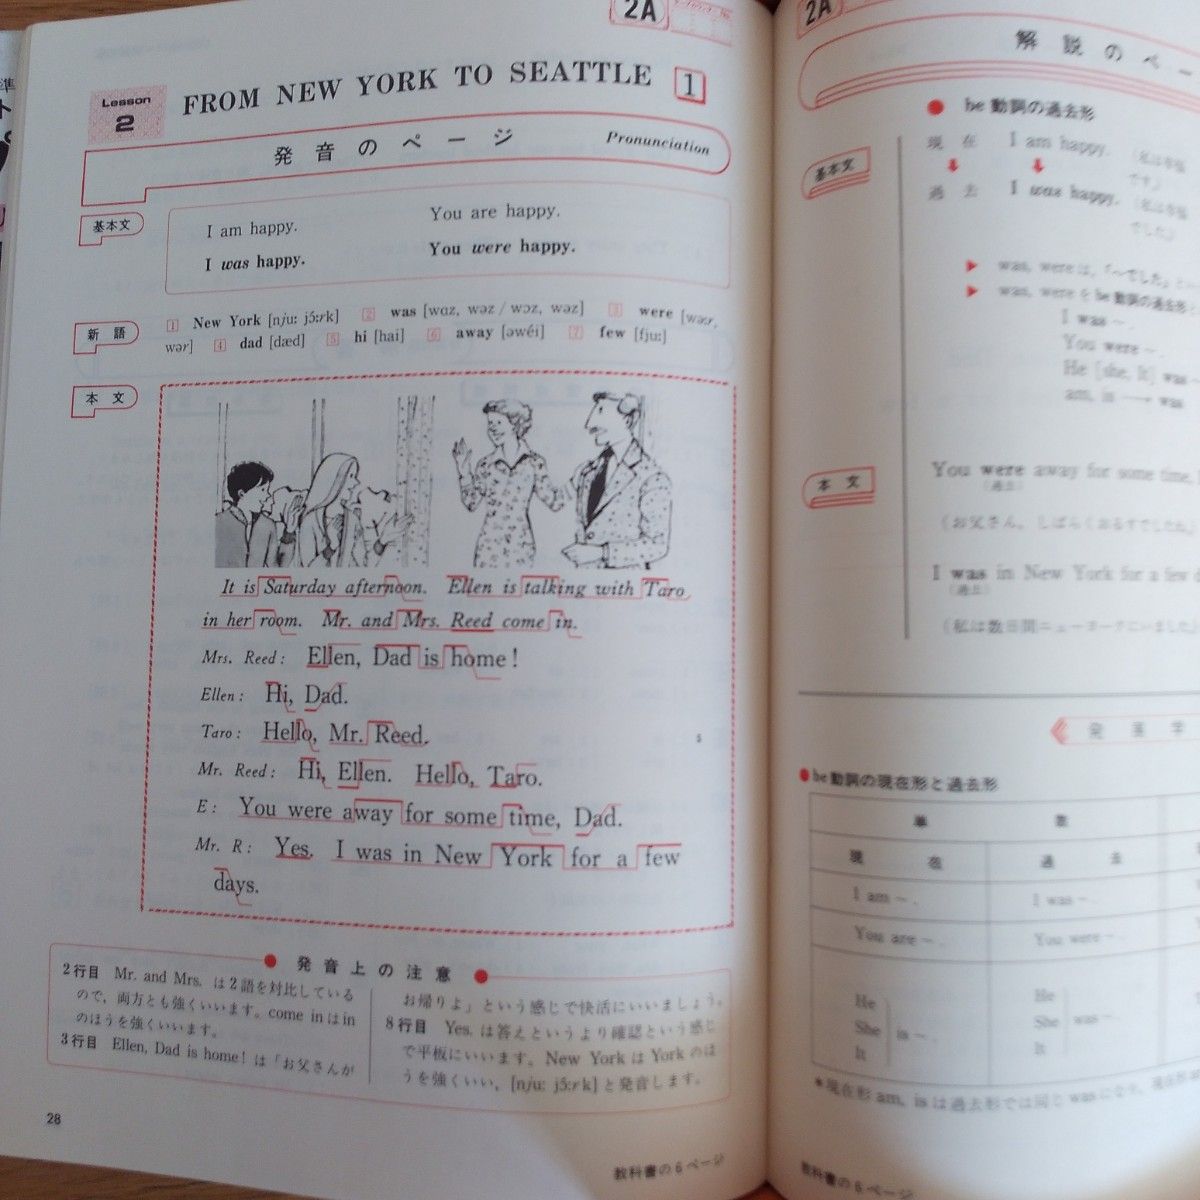 2A
Lesson 2
FROM NEW YORK TO SEATTLE 1
発音のページ Pronunciation
基本文
I am happy. You are happy.
I was happy. You were happy.
新語
1 New York [nju: jɔ́:rk] 2 was [wɑz, wəz / wɔz, wəz] 3 were [wə:r,
wər] 4 dad [dæd] 5 hi [hai] 6 away [əwéi] 7 few [fju:]
本文
It is Saturday afternoon. Ellen is talking with Taro
in her room. Mr. and Mrs. Reed come in.
Mrs. Reed: Ellen, Dad is home!
Ellen: Hi, Dad.
Taro: Hello, Mr. Reed.
5
Mr. Reed: Hi, Ellen. Hello, Taro.
E: You were away for some time, Dad.
Mr. R: Yes. I was in New York for a few
days.
発音上の注意
2行目 Mr. and Mrs. は2語を対比している
ので，両方とも強くいいます。come in は in
のほうを強くいいます。
3行目 Ellen, Dad is home! は「お父さんが
お帰りよ」という感じで快活にいいましょう。
8行目 Yes. は答えというより確認という感じ
で平板にいいます。New York は York のほ
うを強くいい，[nju: jɔ́:rk] と発音します。
28
教科書の6ページ
2A
解説のペー
基本文
● be動詞の過去形
現在 I am happy.
過去 I was happy.
was, were は，「～でした」
was, were を be動詞の過去形
I was ～.
You were ～.
He [she, it] was
am, is → was
本文
You were away for some time,
（過去）
（お父さん，しばらくおるすでしたね
I was in New York for a few
（過去）
（私は数日間ニューヨークにいました
発展学
●be動詞の現在形と過去形
単数
現在 過去
I am ～. I was ～.
You are ～. You were ～.
He He
She is ～. She was ～.
It It
＊現在形 am, is は過去形では同じ was になり，現在形
教科書の6ページ